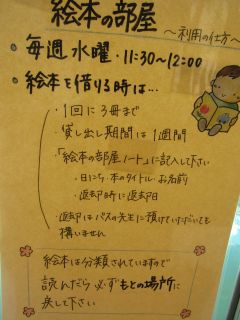 絵本の部屋
〜利用の仕方〜
• 毎週水曜・11:30~12:00
• 絵本を借りる時は…
・1回に3冊まで
・貸し出し期間は1週間
・「絵本の部屋ノート」に記入して下さい
・日にち・本のタイトル・お名前
・返却時に返却日
・返却はバスの先生に預けていただいても
構いません
絵本は分類されていますので
読んだら必ずもとの場所に
戻して下さい